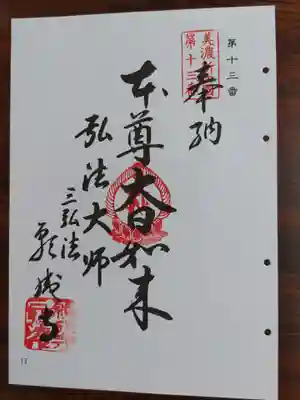 第十三番
奉納
美濃
第十三
本尊大日如来
弘法大師
三弘法
寺
13